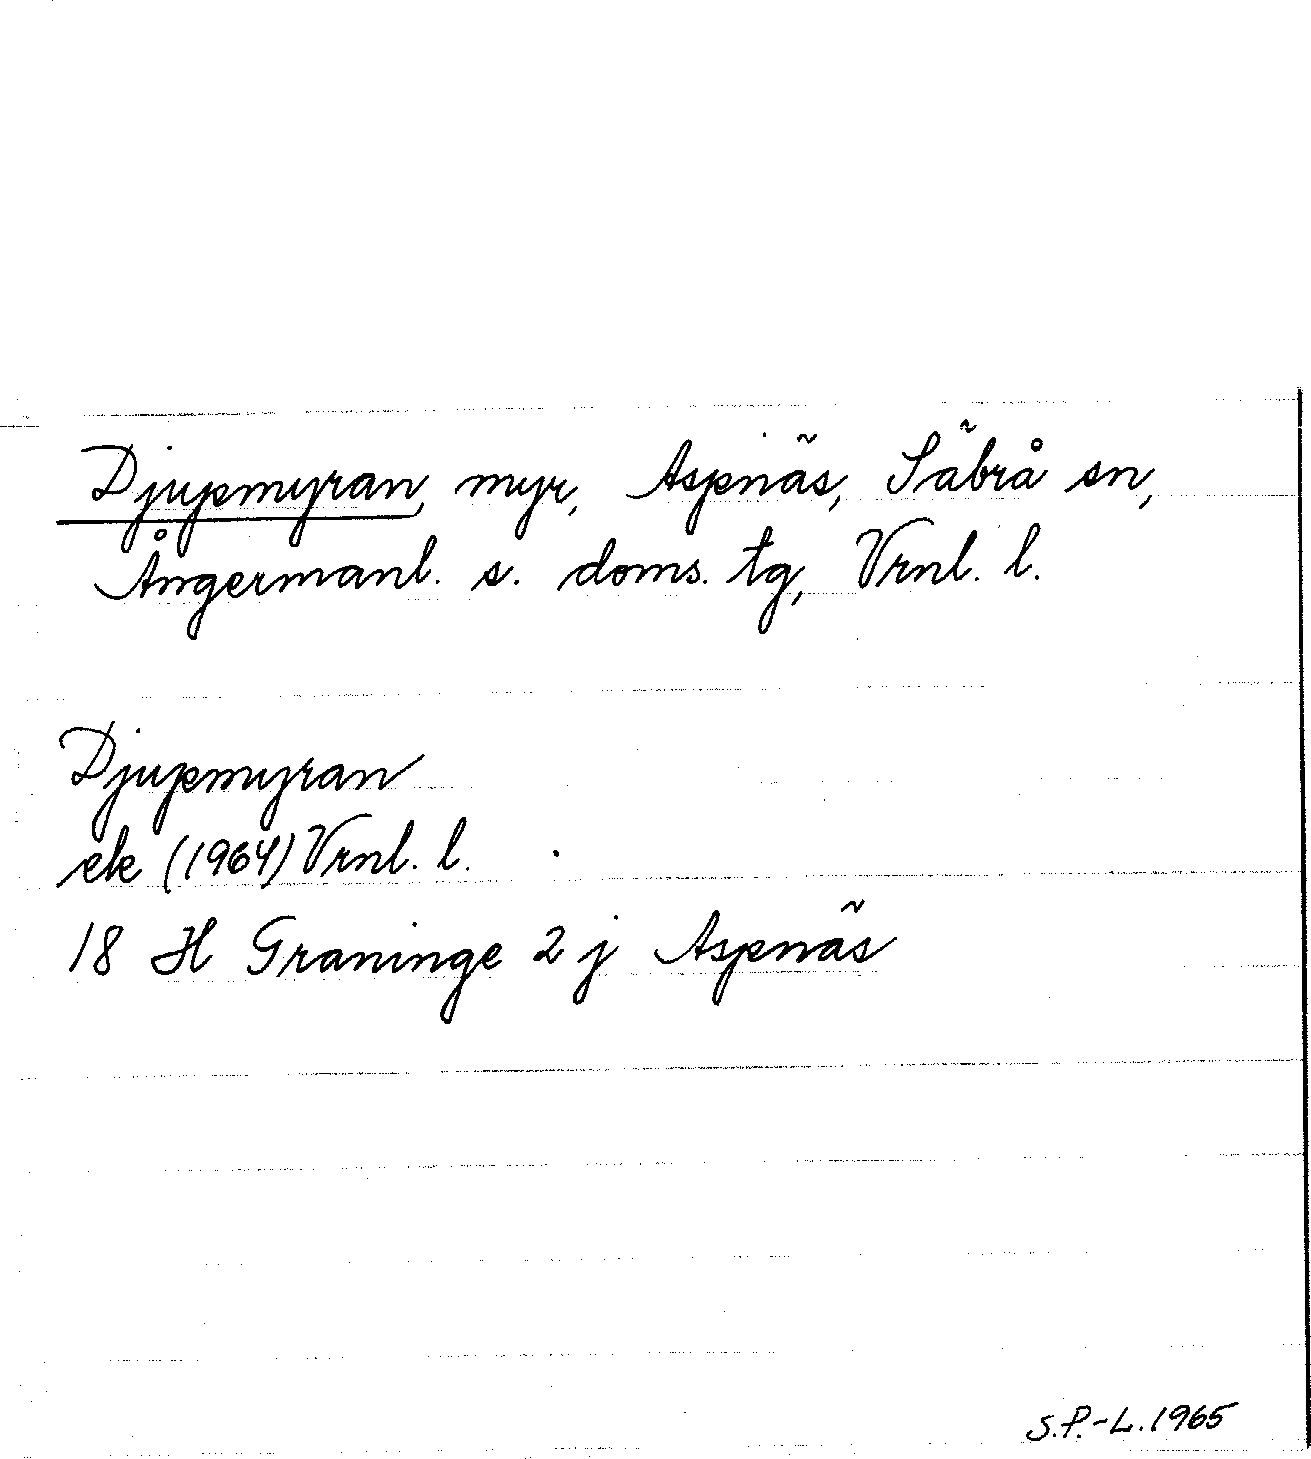 Djupmyran, myr, Aspnäs, Säbrå sn,
Ångermanl. s. doms. tg, Vrnl. l.
Djupmyran
ek (1964) Vrnl. l.
18 H Graninge 2 j Aspnäs
S.P.-L. 1965